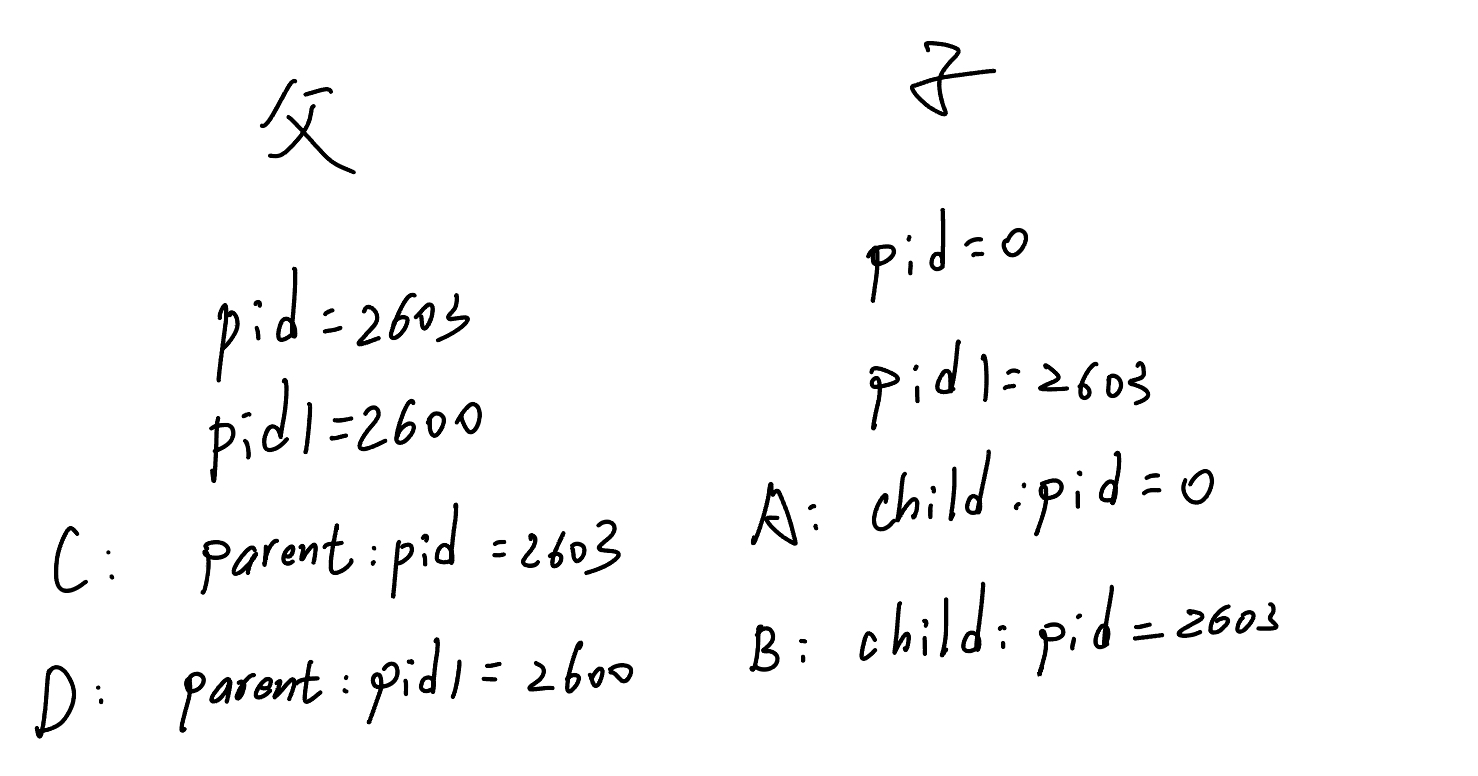 父
pid=2603
pid1=2600
C: parent:pid=2603
D: parent:pid1=2600
子
pid=0
pid1=2603
A: child:pid=0
B: child:pid=2603